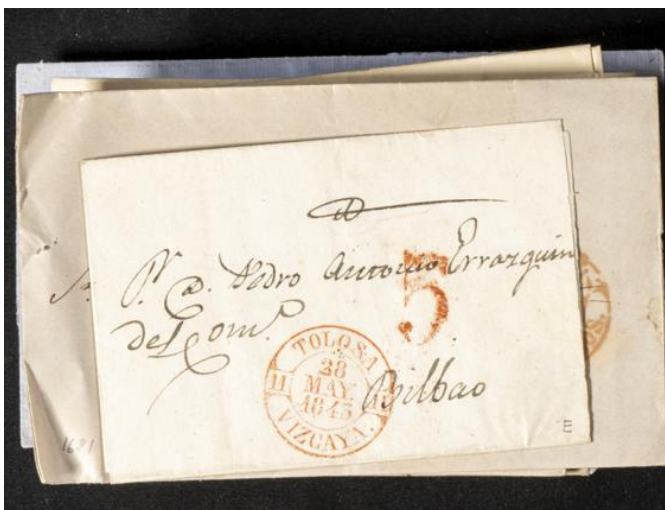 Sr. D. Pedro Antonio Errazquin
del Com.o
Bilbao
5
TOLOSA
28
MAY.
1845
VIZCAYA.
11
1681
E